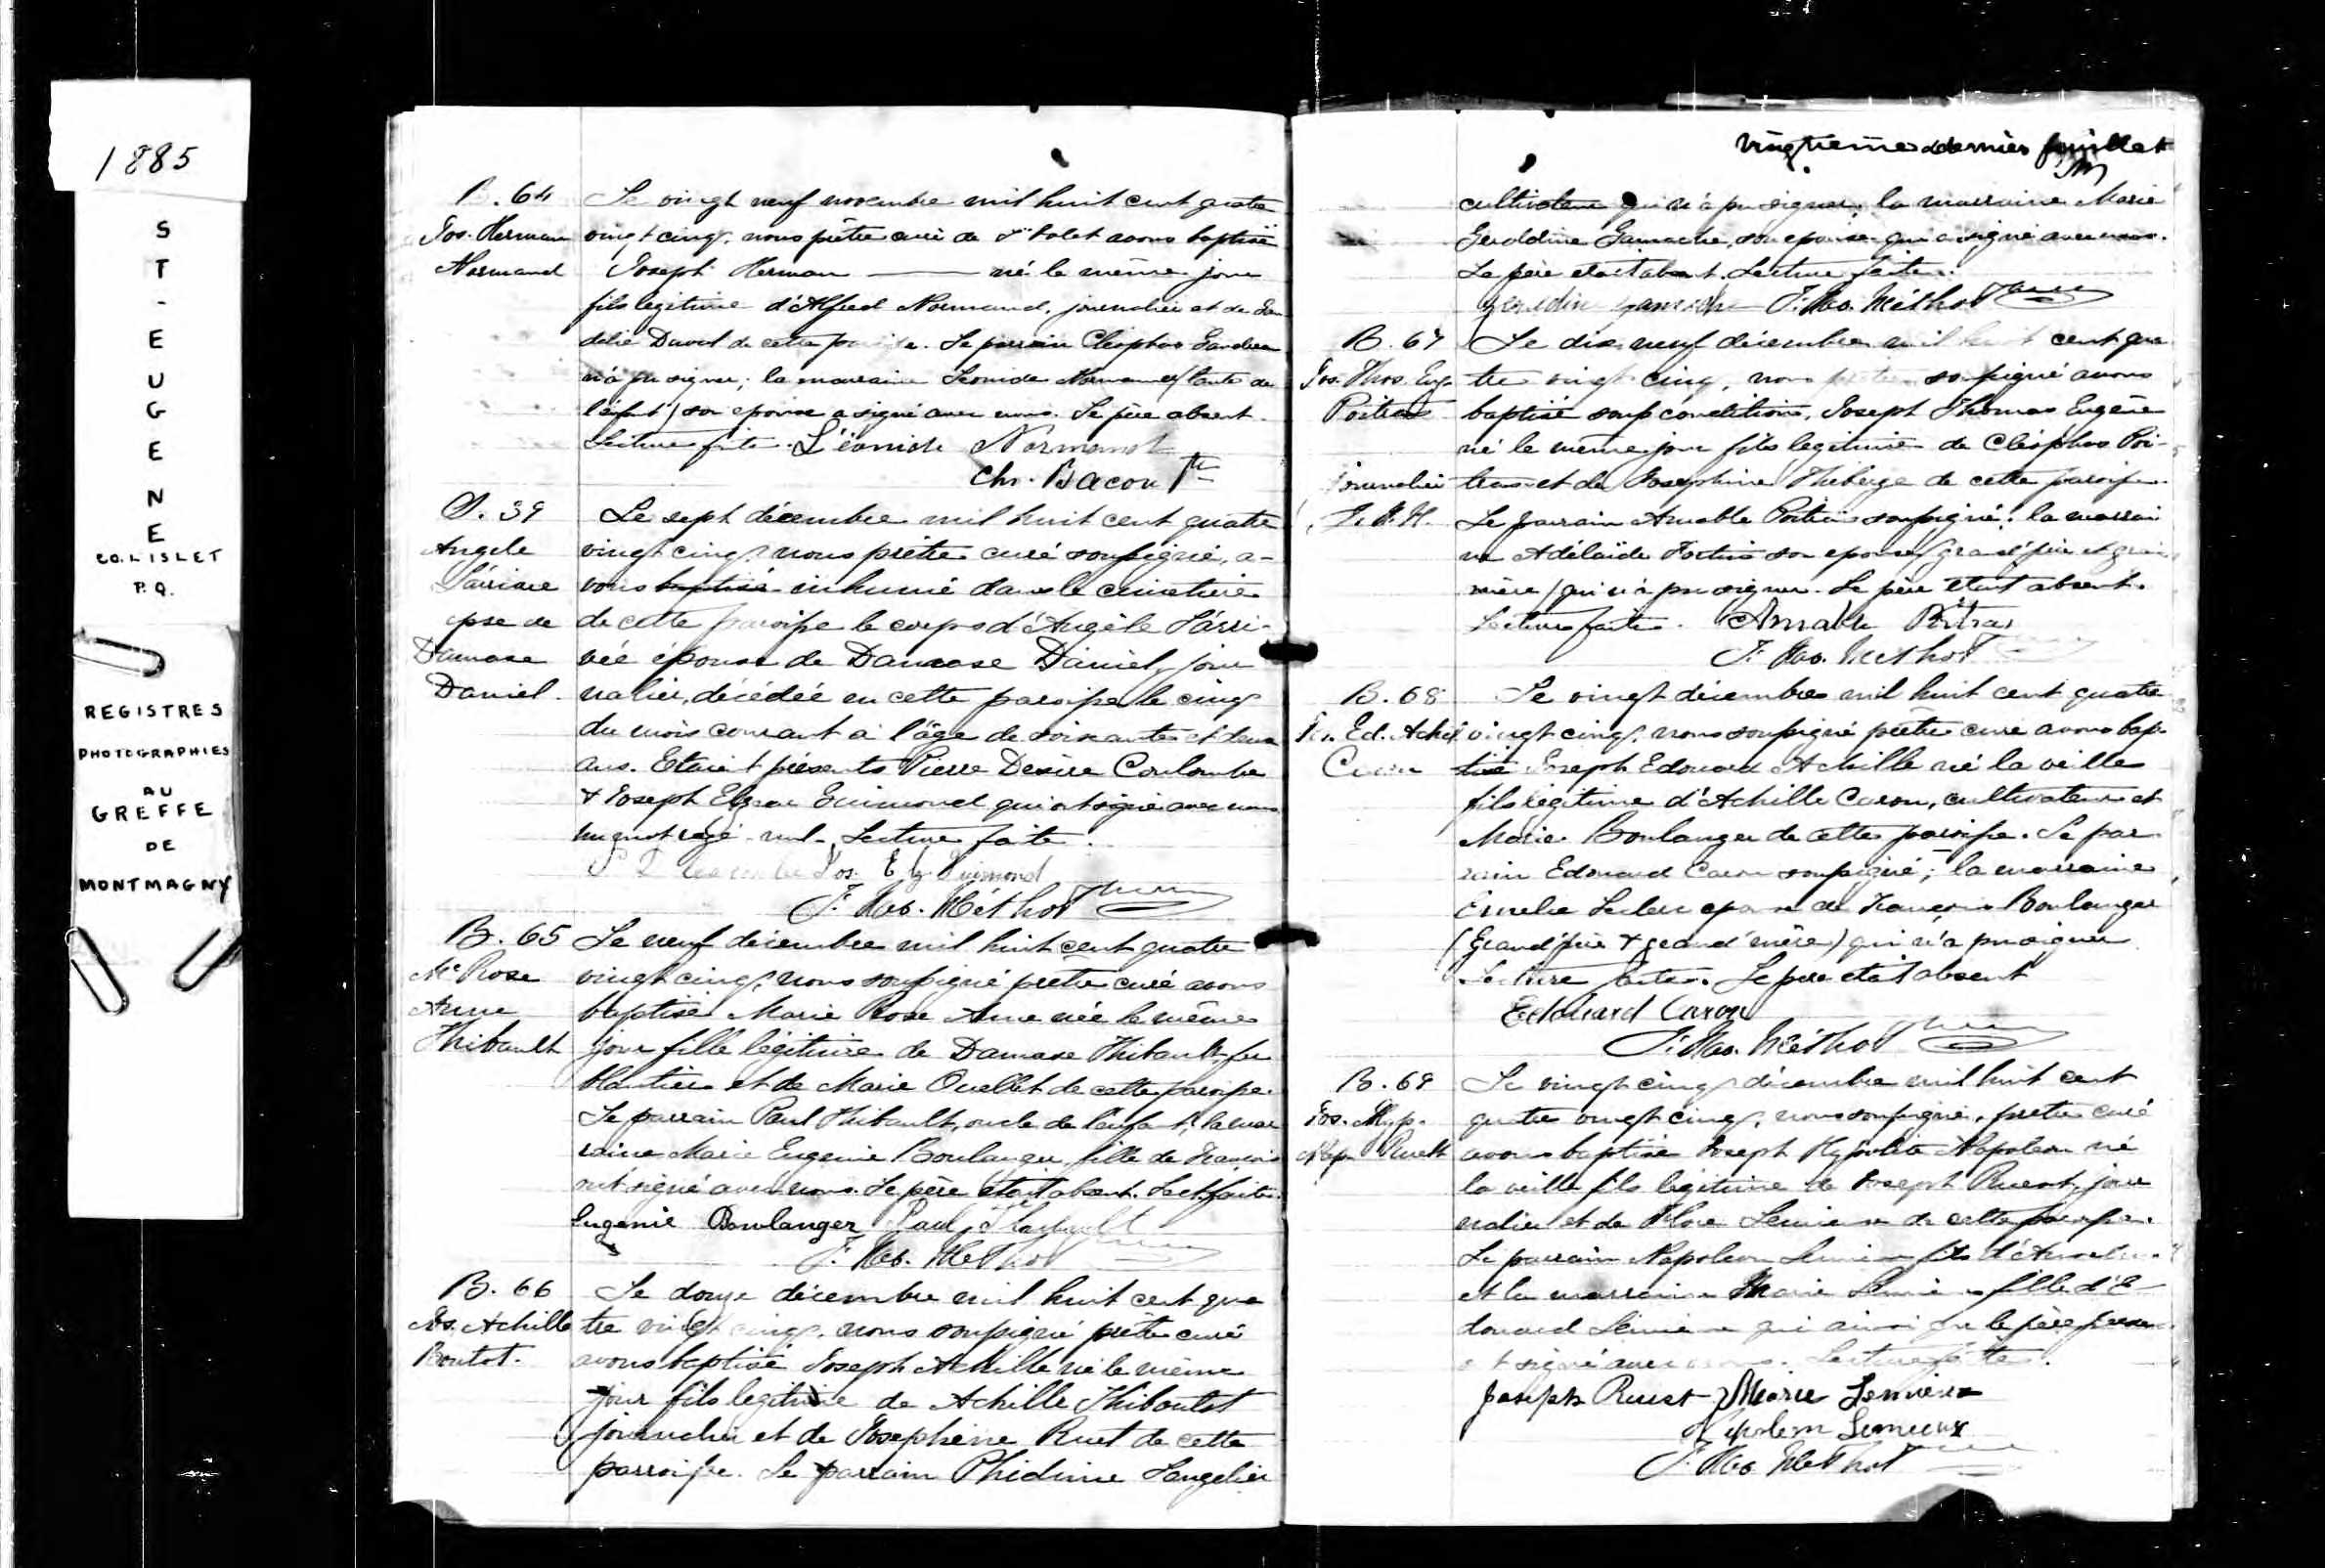 1885
ST-EUGENE
CO. L'ISLET
P.Q.
REGISTRES
PHOTOGRAPHIES
AU
GREFFE
DE
MONTMAGNY
B. 64
Jos. Herman
Normand
Le vingt neuf novembre mil huit cent quatre
vingt cinq, nous prêtre curé de avons baptisé
Joseph Herman né le même jour
fils legitime d'Alfred Normand, journalier et de
Duval de cette. Le parrain Cléophas
n'a pu signer; la marraine Léonide Normand (tante de
l'enfant) son épouse a signé avec nous. Le père absent.
Lecture faite. Léonide Normand
Chs. Bacon Ptre
S. 39
Angele
épse de
Damase
Daniel.
Le sept décembre mil huit cent quatre
vingt cinq, nous prêtre curé soussigné, a-
vons baptisé inhumé dans le cimetière
de cette paroisse le corps d'Angèle Larri-
vée épouse de Damase Daniel, jour
nalier, décédée en cette paroisse le cinq
du mois courant à l'âge de soixante et deux
ans. Etaient présents Pierre Desire Coulombe
& Joseph Guimond qui ont signé avec nous
un mot rayé nul. Lecture faite.
Jos. Elz. Guimond
F. Méthot Ptre
B. 65
Me Rose
Anne
Thibault
Le neuf décembre mil huit cent quatre
vingt cinq, nous soussigné prêtre curé avons
baptisé Marie Rose Anne née le même
jour fille légitime de Damase Thibault, fer
blantier et de Marie Ouellet de cette paroisse.
Le parrain Paul Thibault, oncle de l'enfant, la mar
raine Marie Eugenie Boulanger fille de François
ont signé avec nous. Le père était absent. Lect. faite.
Eugenie Boulanger Paul Thibault
F. Méthot
B. 66
Jos. Achille
Boutot.
Le douze décembre mil huit cent qua
tre vingt cinq, nous soussigné prêtre curé
avons baptisé Joseph Achille né le même
jour fils legitime de Achille Thiboutot
journalier et de Josephine Ruet de cette
parroisse. Le parrain Phidime Langelier
vingtième & dernier feuillet
cultivateur qui n'a pu signer; la marraine Marie
Geraldine Gamache, son epouse qui a signé avec nous.
Le père etait absent. Lecture faite.
Gamache F. Méthot Ptre
B. 67
Jos. Thos. Eug.
Poitras
journalier
Le dix neuf décembre mil huit cent qua
tre vingt cinq, nous prêtre soussigné avons
baptisé sous condition, Joseph Thomas Eugène
né le même jour fils legitime de Cléophas Poi-
tras et de Josephine Theberge de cette paroisse.
Le parrain Amable Poitras soussigné; la marrai
ne Adélaïde Fortin son epouse (grand'père et grand'
mère) qui n'a pu signer. Le père etait absent.
Lecture faite. Amable Poitras
F. Méthot
B. 68
Jos. Ed. Achil
Caron
Le vingt décembre mil huit cent quatre
vingt cinq, nous soussigné prêtre curé avons bap-
tisé Joseph Edouard Achille né la veille
fils légitime d'Achille Caron, cultivateur et
Marie Boulanger de cette paroisse. Le par
rain Edouard Caron soussigné; la marraine
Emelie Leclerc epouse de François Boulanger
(Grand'père & grand'mère) qui n'a pu signer
Lecture faite. Le père etait absent
Edouard Caron
F. Méthot Ptre
B. 69
Jos. Hyp.
Nap. Ruest
Le vingt cinq décembre mil huit cent
quatre vingt cinq, nous soussigné, prêtre curé
avons baptisé Joseph Hypolite Napoleon né
la veille fils légitime de Joseph Ruest, jour
nalier et de Flore Lemieux de cette paroisse.
Le parrain Napoleon Lemieux fils d'Anselme
et la marraine Marie Lemieux fille d'E-
douard Lemieux qui ainsi que le père présent
ont signé avec nous. Lecture faite.
Joseph Ruest Marie Lemieux
Napoleon Lemieux
F. Méthot